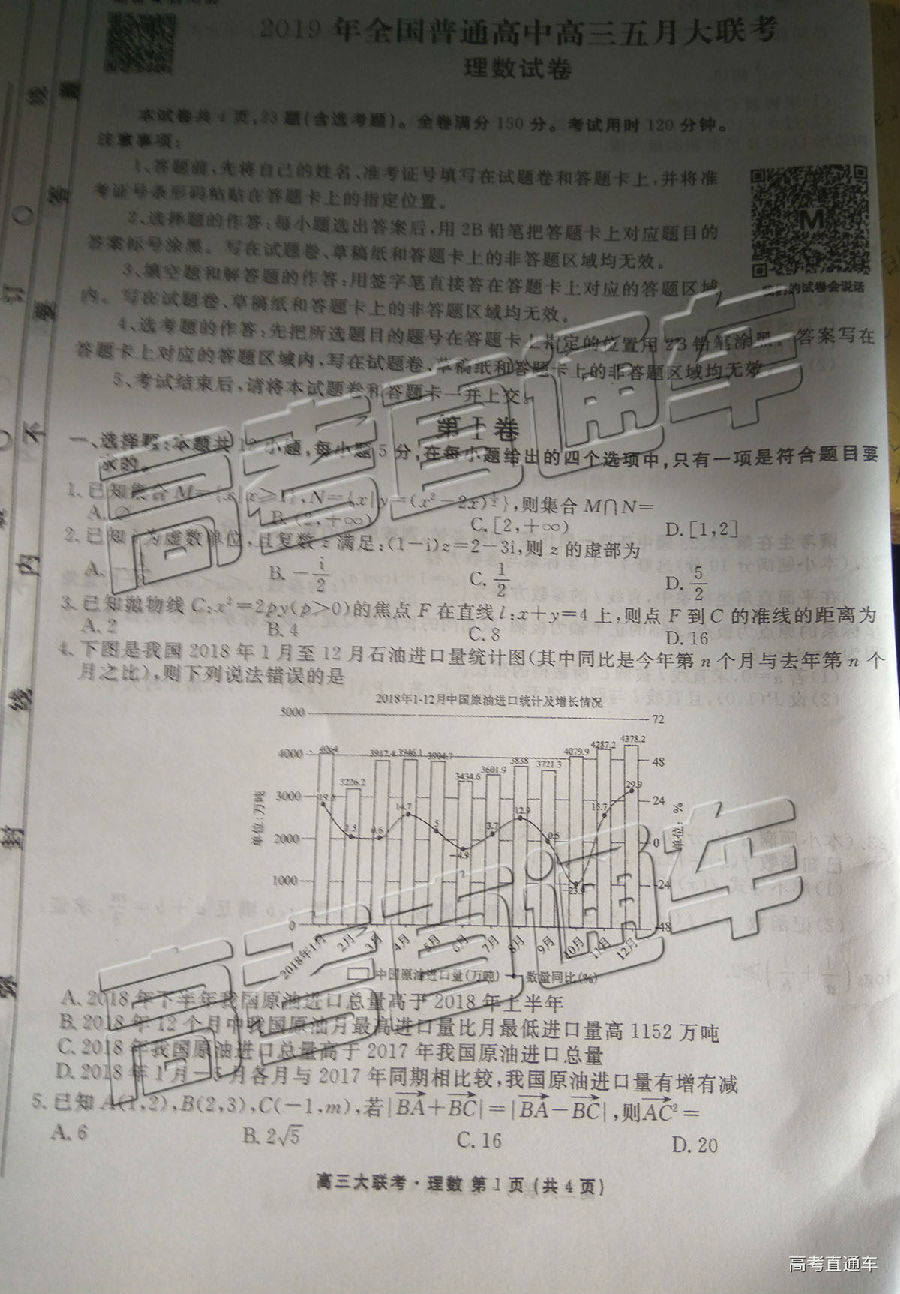 2019 年全国普通高中高三五月大联考
理数试卷
本试卷共 4 页,23 题(含选考题)。全卷满分 150 分。考试用时 120 分钟。
注意事项:
1、答题前,先将自己的姓名、准考证号填写在试题卷和答题卡上,并将准
考证号条形码粘贴在答题卡上的指定位置。
2、选择题的作答:每小题选出答案后,用 2B 铅笔把答题卡上对应题目的
答案标号涂黑。写在试题卷、草稿纸和答题卡上的非答题区域均无效。
3、填空题和解答题的作答:用签字笔直接答在答题卡上对应的答题区域
内。写在试题卷、草稿纸和答题卡上的非答题区域均无效。
的试卷会说话
4、选考题的作答:先把所选题目的题号在答题卡上指定的位置用 2B 铅笔涂黑。答案写在
答题卡上对应的答题区域内,写在试题卷、草稿纸和答题卡上的非答题区域均无效
5、考试结束后,请将本试题卷和答题卡一并上交。
第 I 卷
一、选择题:本题共 12 小题,每小题 5 分,在每小题给出的四个选项中,只有一项是符合题目要
求的。
1. 已知集合 M={x|x≥1},N={x|y=(x²-2x)^½},则集合 M∩N=
A. ∅ B. (2,+∞) C. [2,+∞) D. [1,2]
2. 已知 i 为虚数单位,且复数 z 满足:(1-i)z=2-3i,则 z 的虚部为
A. B. -i/2 C. 1/2 D. 5/2
3. 已知抛物线 C:x²=2py(p>0)的焦点 F 在直线 l:x+y=4 上,则点 F 到 C 的准线的距离为
A. 2 B. 4 C. 8 D. 16
4. 下图是我国 2018 年 1 月至 12 月石油进口量统计图(其中同比是今年第 n 个月与去年第 n 个
月之比),则下列说法错误的是
2018年1-12月中国原油进口统计及增长情况
5000 72
4064 3226.2 3917.4 3946.1 3904.7 3434.6 3601.9 3838 3721.3 4079.9 4287.2 4378.2
4000 48
3000 24
2000 0
1000 24
0 48
单位:万吨
单位:%
14.7 5 -4.9 3.7 12.9 15.7 29.9
2018年1月 2月 3月 4月 5月 6月 7月 8月 9月 10月 11月 12月
中国原油进口量(万吨) 数量同比(%)
A. 2018 年下半年我国原油进口总量高于 2018 年上半年
B. 2018 年 12 个月中我国原油月最高进口量比月最低进口量高 1152 万吨
C. 2018 年我国原油进口总量高于 2017 年我国原油进口总量
D. 2018 年 1 月— 月各月与 2017 年同期相比较,我国原油进口量有增有减
5. 已知 A(1,2),B(2,3),C(-1,m),若|BA+BC|=|BA-BC|,则AC²=
A. 6 B. 2√5 C. 16 D. 20
高三大联考·理数 第 1 页(共 4 页)
高考直通车
高考直通车
高考直通车